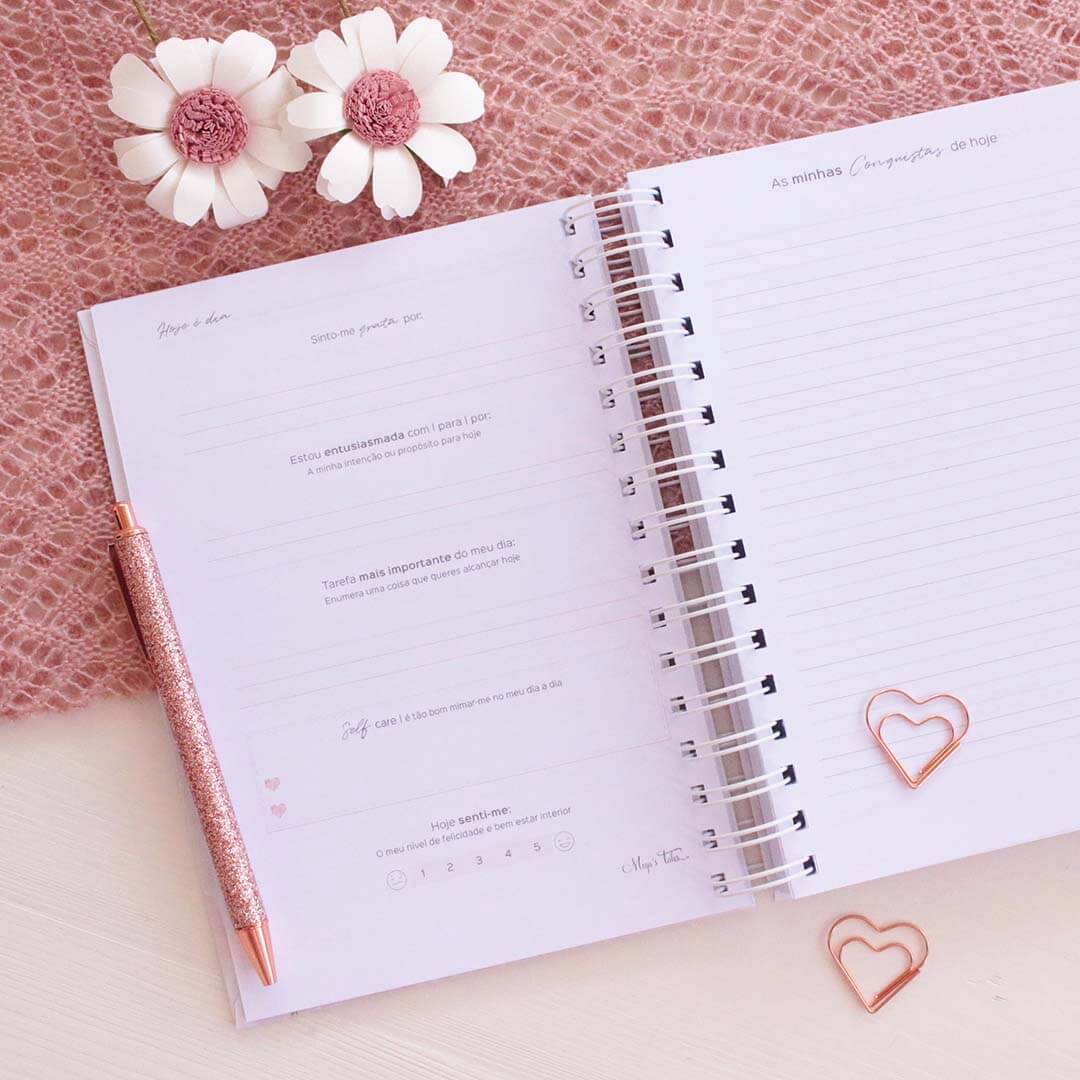 Hoje é dia
Sinto-me grata por:
Estou entusiasmada com | para | por:
A minha intenção ou propósito para hoje
Tarefa mais importante do meu dia:
Enumera uma coisa que queres alcançar hoje
Self care | é tão bom mimar-me no meu dia a dia
Hoje senti-me:
O meu nível de felicidade e bem estar interior
1 2 3 4 5
As minhas Conquistas de hoje